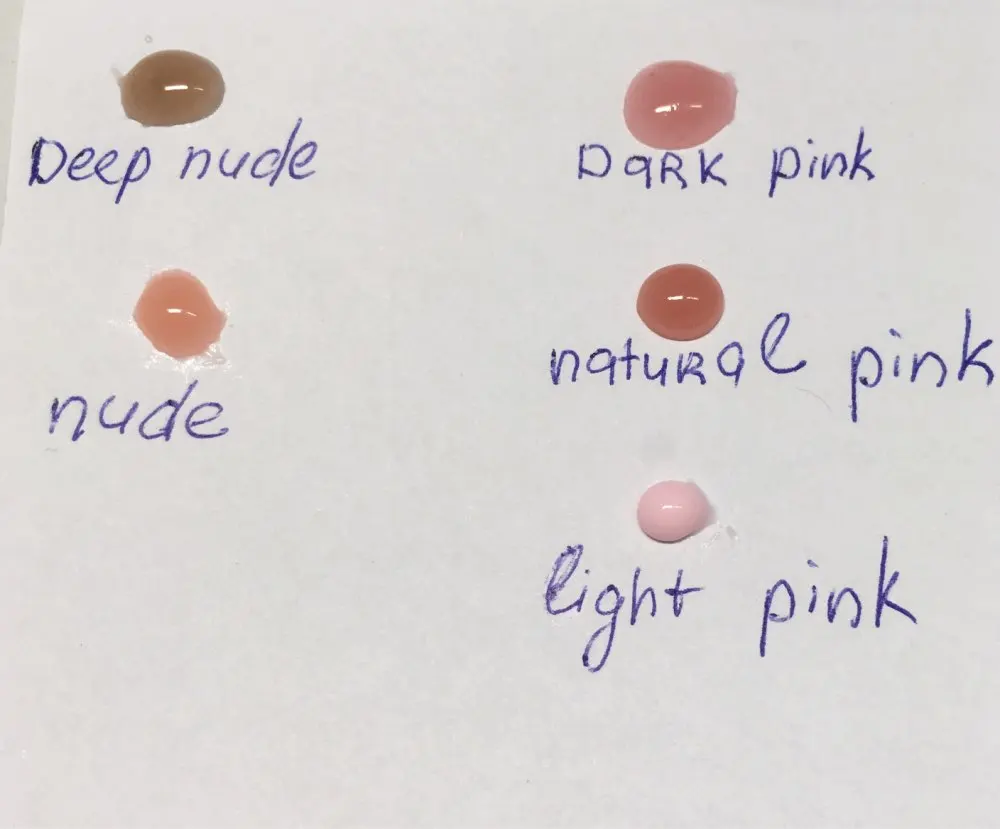 Deep nude
Dark pink
nude
natural pink
light pink